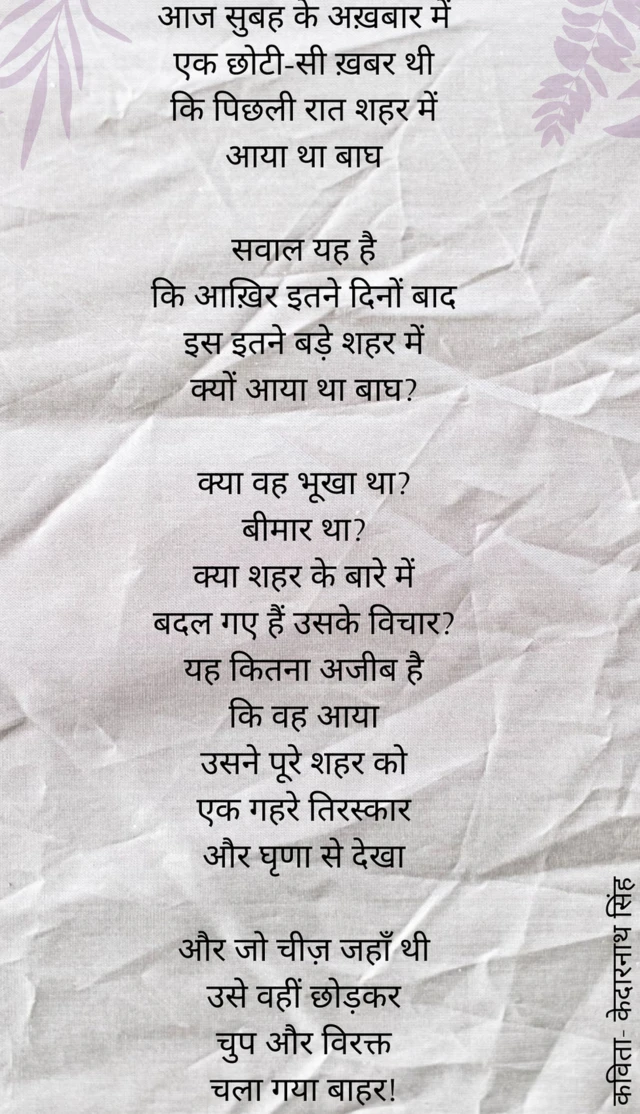 आज सुबह के अख़बार में
एक छोटी-सी ख़बर थी
कि पिछली रात शहर में
आया था बाघ

सवाल यह है
कि आख़िर इतने दिनों बाद
इस इतने बड़े शहर में
क्यों आया था बाघ?

क्या वह भूखा था?
बीमार था?
क्या शहर के बारे में
बदल गए हैं उसके विचार?
यह कितना अजीब है
कि वह आया
उसने पूरे शहर को
एक गहरे तिरस्कार
और घृणा से देखा

और जो चीज़ जहाँ थी
उसे वहीं छोड़कर
चुप और विरक्त
चला गया बाहर!
कविता- केदारनाथ सिंह